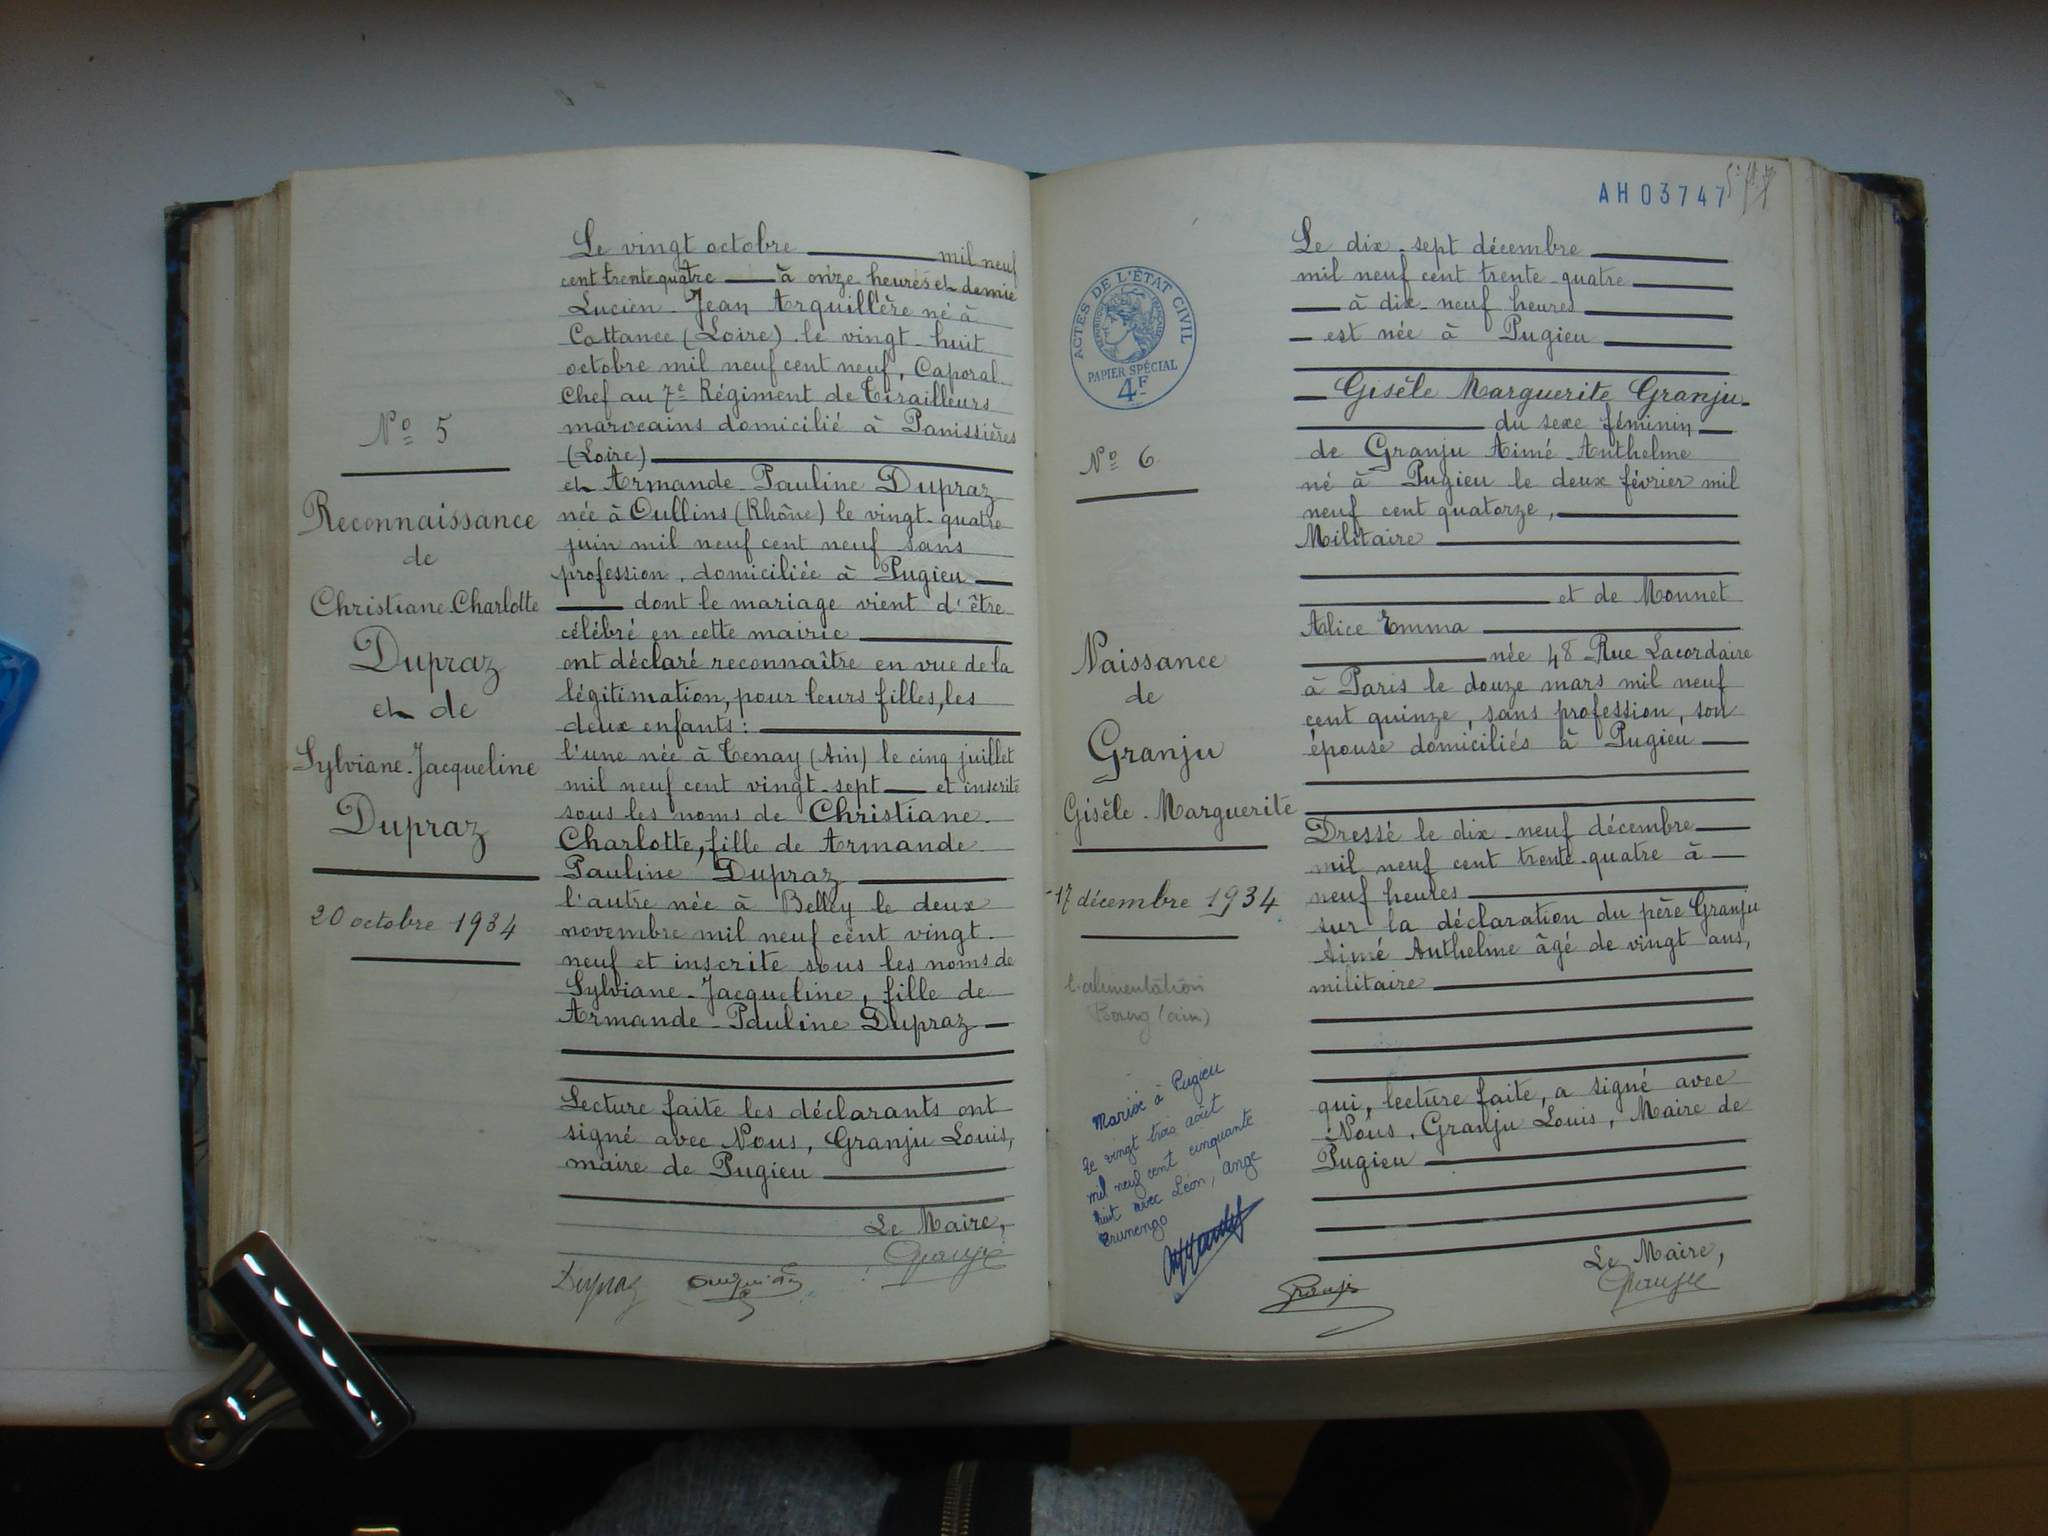 Le vingt octobre mil neuf
cent trente quatre à onze heures et demie
Lucien Jean Arquillère né à
Cottance (Loire) le vingt-huit
octobre mil neuf cent neuf, Caporal
Chef au 7e Régiment de Tirailleurs
marocains domicilié à Panissières
(Loire)
et Armande Pauline Dupraz
née à Oullins (Rhône) le vingt-quatre
juin mil neuf cent neuf sans
profession, domiciliée à Pugieu
dont le mariage vient d'être
célébré en cette mairie
ont déclaré reconnaître en vue de la
légitimation, pour leurs filles, les
deux enfants:
l'une née à Tenay (Ain) le cinq juillet
mil neuf cent vingt-sept et inscrite
sous les noms de Christiane
Charlotte, fille de Armande
Pauline Dupraz
l'autre née à Belley le deux
novembre mil neuf cent vingt-
neuf et inscrite sous les noms de
Sylviane-Jacqueline, fille de
Armande-Pauline Dupraz
Lecture faite les déclarants ont
signé avec Nous, Granju Louis,
maire de Pugieu
Le Maire,
Granju
Dupraz
No 5
Reconnaissance
de
Christiane-Charlotte
Dupraz
et de
Sylviane-Jacqueline
Dupraz
20 octobre 1934
AH03747
ACTES DE L'ÉTAT CIVIL
PAPIER SPÉCIAL
4F
No 6
Naissance
de
Granju
Gisèle-Marguerite
17 décembre 1934
l'alimentation
Bourg (ain)
Mariée à Pugieu
le vingt trois août
mil neuf cent cinquante
huit avec Léon, Ange
Brunengo
Le dix-sept décembre
mil neuf cent trente-quatre
à dix-neuf heures
est née à Pugieu
Gisèle Marguerite Granju
du sexe féminin
de Granju Aimé-Anthelme
né à Pugieu le deux février mil
neuf cent quatorze,
Militaire
et de Monnet
Alice Emma
née 48 Rue Lacordaire
à Paris le douze mars mil neuf
cent quinze, sans profession, son
épouse domiciliés à Pugieu
Dressé le dix-neuf décembre
mil neuf cent trente-quatre à
neuf heures
sur la déclaration du père Granju
Aimé Anthelme âgé de vingt ans,
militaire
qui, lecture faite, a signé avec
Nous, Granju Louis, Maire de
Pugieu
Le Maire,
Granju
Granju